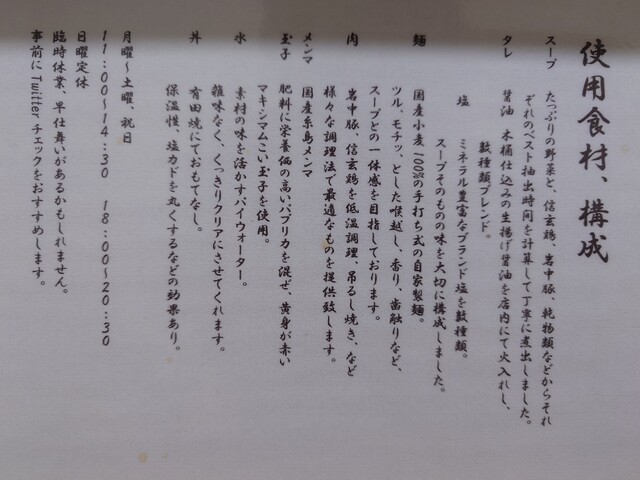 使用食材、構成
スープ たっぷりの野菜と、信玄鶏、岩中豚、乾物類などからそれ
ぞれのベスト抽出時間を計算して丁寧に煮出しました。
タレ 醤油 木桶仕込みの生揚げ醤油を店内にて火入れし、
数種類ブレンド。
塩 ミネラル豊富なブランド塩を数種類。
スープそのものの味を大切に構成しました。
麺 国産小麦100%の手打ち式の自家製麺。
ツル、モチッ、とした喉越し、香り、歯触りなど、
スープとの一体感を目指しております。
肉 岩中豚、信玄鶏を低温調理、吊るし焼き、など
様々な調理法で最適なものを提供致します。
メンマ 国産糸島メンマ
玉子 肥料に栄養価の高いパプリカを混ぜ、黄身が赤い
マキシマムこい玉子を使用。
水 素材の味を活かすパイウォーター。
雑味なく、くっきりクリアにさせてくれます。
丼 有田焼にておもてなし。
保温性、塩カドを丸くするなどの効果あり。
月曜〜土曜、祝日
11:00〜14:30 18:00〜20:30
日曜定休
臨時休業、早仕舞いがあるかもしれません。
事前にTwitterチェックをおすすめします。